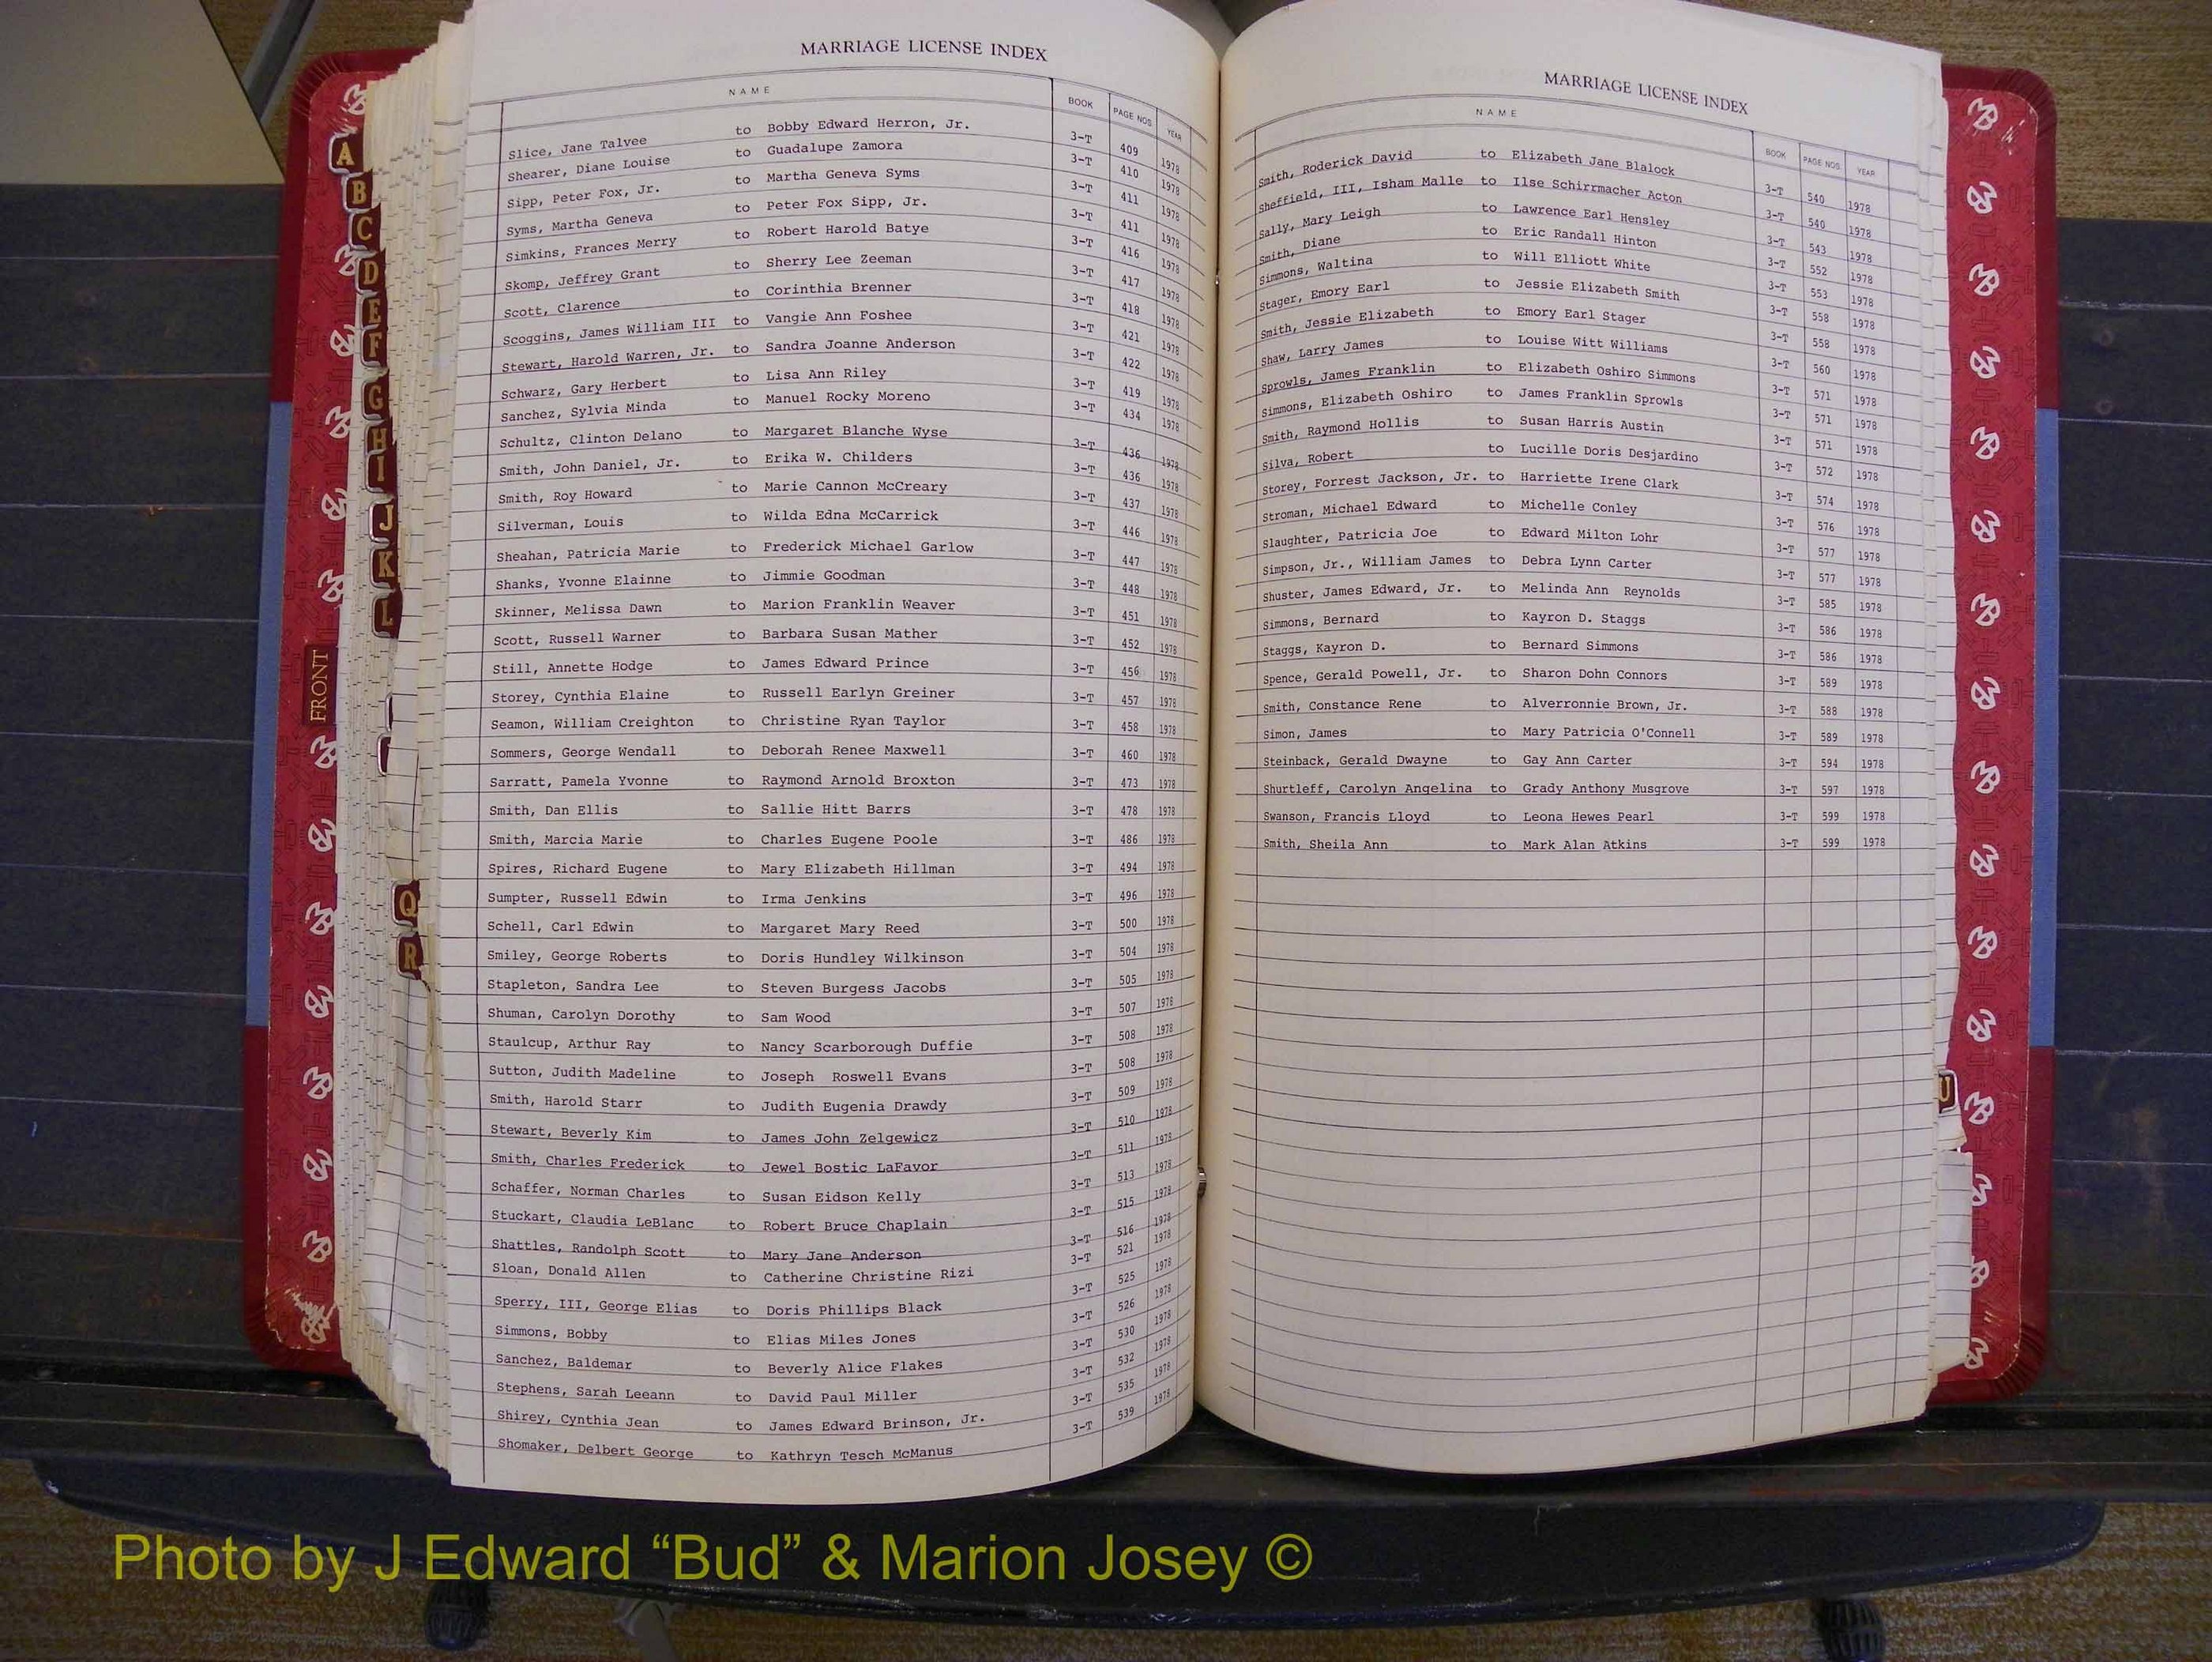 MARRIAGE LICENSE INDEX
NAME BOOK PAGE NOS. YEAR
Slice, Jane Talvee to Bobby Edward Herron, Jr. 3-T 409 1978
Shearer, Diane Louise to Guadalupe Zamora 3-T 410 1978
Sipp, Peter Fox, Jr. to Martha Geneva Syms 3-T 411 1978
Syms, Martha Geneva to Peter Fox Sipp, Jr. 3-T 411 1978
Simkins, Frances Merry to Robert Harold Batye 3-T 416 1978
Skomp, Jeffrey Grant to Sherry Lee Zeeman 3-T 417 1978
Scott, Clarence to Corinthia Brenner 3-T 418 1978
Scoggins, James William III to Vangie Ann Foshee 3-T 421 1978
Stewart, Harold Warren, Jr. to Sandra Joanne Anderson 3-T 422 1978
Schwarz, Gary Herbert to Lisa Ann Riley 3-T 419 1978
Sanchez, Sylvia Minda to Manuel Rocky Moreno 3-T 434 1978
Schultz, Clinton Delano to Margaret Blanche Wyse 3-T 436 1978
Smith, John Daniel, Jr. to Erika W. Childers 3-T 436 1978
Smith, Roy Howard to Marie Cannon McCreary 3-T 437 1978
Silverman, Louis to Wilda Edna McCarrick 3-T 446 1978
Sheahan, Patricia Marie to Frederick Michael Garlow 3-T 447 1978
Shanks, Yvonne Elainne to Jimmie Goodman 3-T 448 1978
Skinner, Melissa Dawn to Marion Franklin Weaver 3-T 451 1978
Scott, Russell Warner to Barbara Susan Mather 3-T 452 1978
Still, Annette Hodge to James Edward Prince 3-T 456 1978
Storey, Cynthia Elaine to Russell Earlyn Greiner 3-T 457 1978
Seamon, William Creighton to Christine Ryan Taylor 3-T 458 1978
Sommers, George Wendall to Deborah Renee Maxwell 3-T 460 1978
Sarratt, Pamela Yvonne to Raymond Arnold Broxton 3-T 473 1978
Smith, Dan Ellis to Sallie Hitt Barrs 3-T 478 1978
Smith, Marcia Marie to Charles Eugene Poole 3-T 486 1978
Spires, Richard Eugene to Mary Elizabeth Hillman 3-T 494 1978
Sumpter, Russell Edwin to Irma Jenkins 3-T 496 1978
Schell, Carl Edwin to Margaret Mary Reed 3-T 500 1978
Smiley, George Roberts to Doris Hundley Wilkinson 3-T 504 1978
Stapleton, Sandra Lee to Steven Burgess Jacobs 3-T 505 1978
Shuman, Carolyn Dorothy to Sam Wood 3-T 507 1978
Staulcup, Arthur Ray to Nancy Scarborough Duffie 3-T 508 1978
Sutton, Judith Madeline to Joseph Roswell Evans 3-T 508 1978
Smith, Harold Starr to Judith Eugenia Drawdy 3-T 509 1978
Stewart, Beverly Kim to James John Zelgewicz 3-T 510 1978
Smith, Charles Frederick to Jewel Bostic LaFavor 3-T 511 1978
Schaffer, Norman Charles to Susan Eidson Kelly 3-T 513 1978
Stuckart, Claudia LeBlanc to Robert Bruce Chaplain 3-T 515 1978
Shattles, Randolph Scott to Mary Jane Anderson 3-T 516 1978
Sloan, Donald Allen to Catherine Christine Rizi 3-T 521 1978
Sperry, III, George Elias to Doris Phillips Black 3-T 525 1978
Simmons, Bobby to Elias Miles Jones 3-T 526 1978
Sanchez, Baldemar to Beverly Alice Flakes 3-T 530 1978
Stephens, Sarah Leeann to David Paul Miller 3-T 532 1978
Shirey, Cynthia Jean to James Edward Brinson, Jr. 3-T 535 1978
Shomaker, Delbert George to Kathryn Tesch McManus 3-T 539 1978
MARRIAGE LICENSE INDEX
NAME BOOK PAGE NOS. YEAR
Smith, Roderick David to Elizabeth Jane Blalock 3-T 540 1978
Sheffield, III, Isham Malle to Ilse Schirrmacher Acton 3-T 540 1978
Sally, Mary Leigh to Lawrence Earl Hensley 3-T 543 1978
Smith, Diane to Eric Randall Hinton 3-T 552 1978
Simmons, Waltina to Will Elliott White 3-T 553 1978
Stager, Emory Earl to Jessie Elizabeth Smith 3-T 558 1978
Smith, Jessie Elizabeth to Emory Earl Stager 3-T 558 1978
Shaw, Larry James to Louise Witt Williams 3-T 560 1978
Sprowls, James Franklin to Elizabeth Oshiro Simmons 3-T 571 1978
Simmons, Elizabeth Oshiro to James Franklin Sprowls 3-T 571 1978
Smith, Raymond Hollis to Susan Harris Austin 3-T 571 1978
Silva, Robert to Lucille Doris Desjardino 3-T 572 1978
Storey, Forrest Jackson, Jr. to Harriette Irene Clark 3-T 574 1978
Stroman, Michael Edward to Michelle Conley 3-T 576 1978
Slaughter, Patricia Joe to Edward Milton Lohr 3-T 577 1978
Simpson, Jr., William James to Debra Lynn Carter 3-T 577 1978
Shuster, James Edward, Jr. to Melinda Ann Reynolds 3-T 585 1978
Simmons, Bernard to Kayron D. Staggs 3-T 586 1978
Staggs, Kayron D. to Bernard Simmons 3-T 586 1978
Spence, Gerald Powell, Jr. to Sharon Dohn Connors 3-T 589 1978
Smith, Constance Rene to Alverronnie Brown, Jr. 3-T 588 1978
Simon, James to Mary Patricia O'Connell 3-T 589 1978
Steinback, Gerald Dwayne to Gay Ann Carter 3-T 594 1978
Shurtleff, Carolyn Angelina to Grady Anthony Musgrove 3-T 597 1978
Swanson, Francis Lloyd to Leona Hewes Pearl 3-T 599 1978
Smith, Sheila Ann to Mark Alan Atkins 3-T 599 1978
A
B
C
D
E
F
G
H
I
J
K
L
FRONT
Q
R
U
Photo by J Edward “Bud” & Marion Josey ©